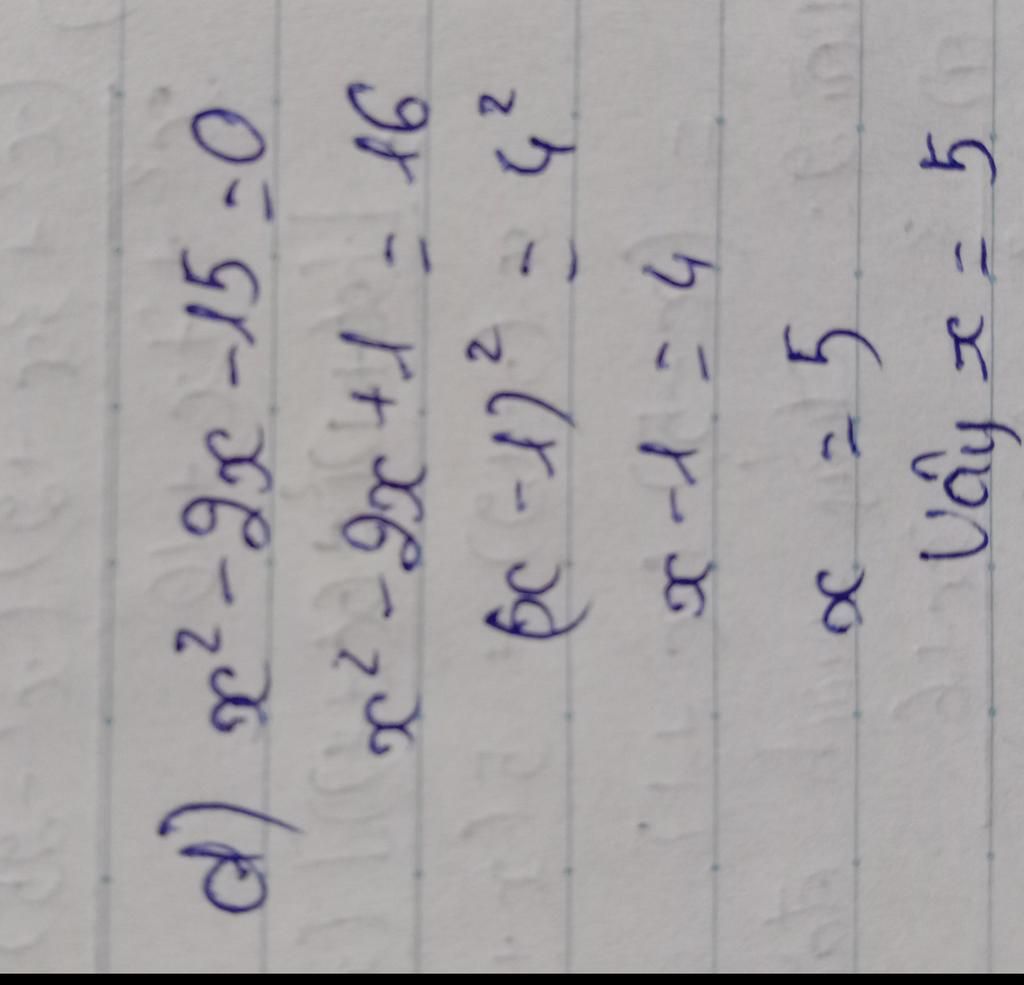 d) x² - 2x - 15 = 0
x² - 2x + 1 = 16
(x - 1)² = 4²
x - 1 = 4
x = 5
Vậy x = 5